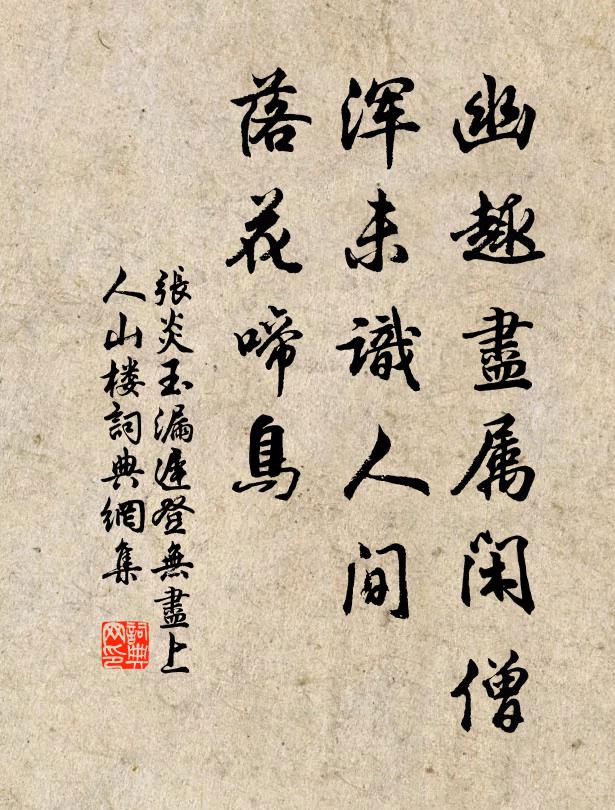 幽趣盡属闲僧
浑未識人间
落花啼鳥
張炎玉漏遲登無盡上
人山楼詞典網集
詞典
网印